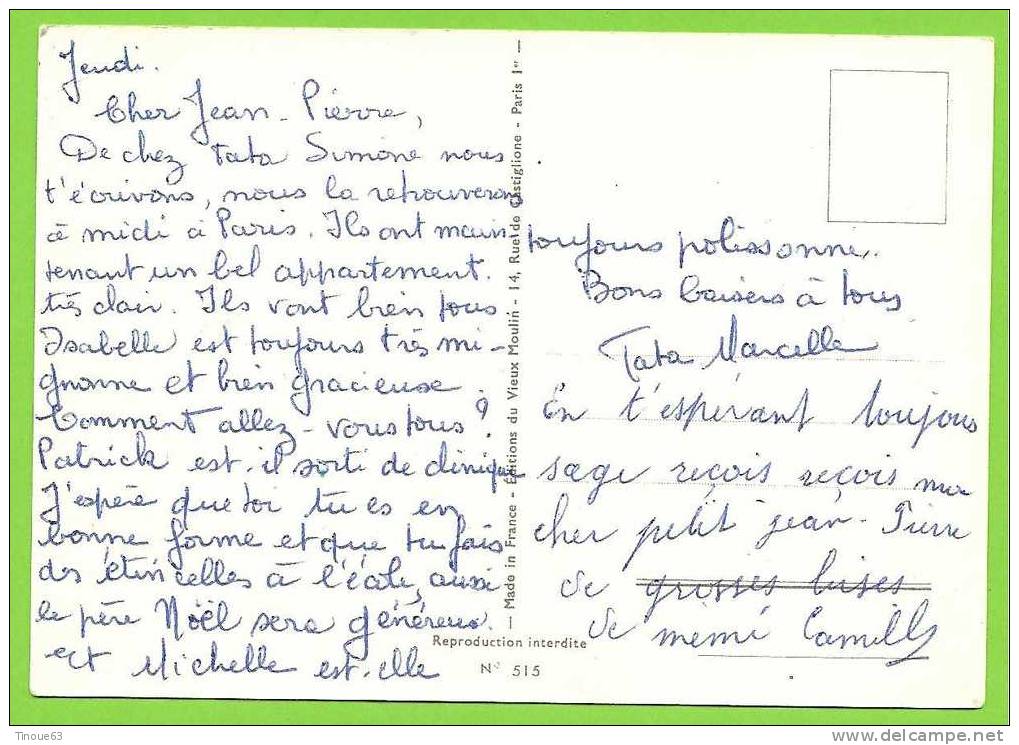 Jeudi.
Cher Jean-Pierre,
De chez Tata Simone nous
t'écrivons, nous la retrouverons
à midi à Paris. Ils ont main-
tenant un bel appartement.
très clair. Ils vont bien tous
Isabelle est toujours très mi-
gnonne et bien gracieuse.
Comment allez-vous tous?
Patrick est-il sorti de clinique
J'espère que toi tu es en
bonne forme et que tu fais
des étincelles à l'école, aussi
le père Noël sera généreux.
Et Michelle est-elle
toujours polissonne.
Bons baisers à tous
Tata Marcelle
En t'espérant toujours
sage reçois reçois mon
cher petit jean-Pierre
de grosses bises
de mémé Camille
— Made in France - Éditions du Vieux Moulin - 14, Rue de Castiglione - Paris 1er —
Reproduction interdite
N° 515
Tinoue63
www.delcampe.net